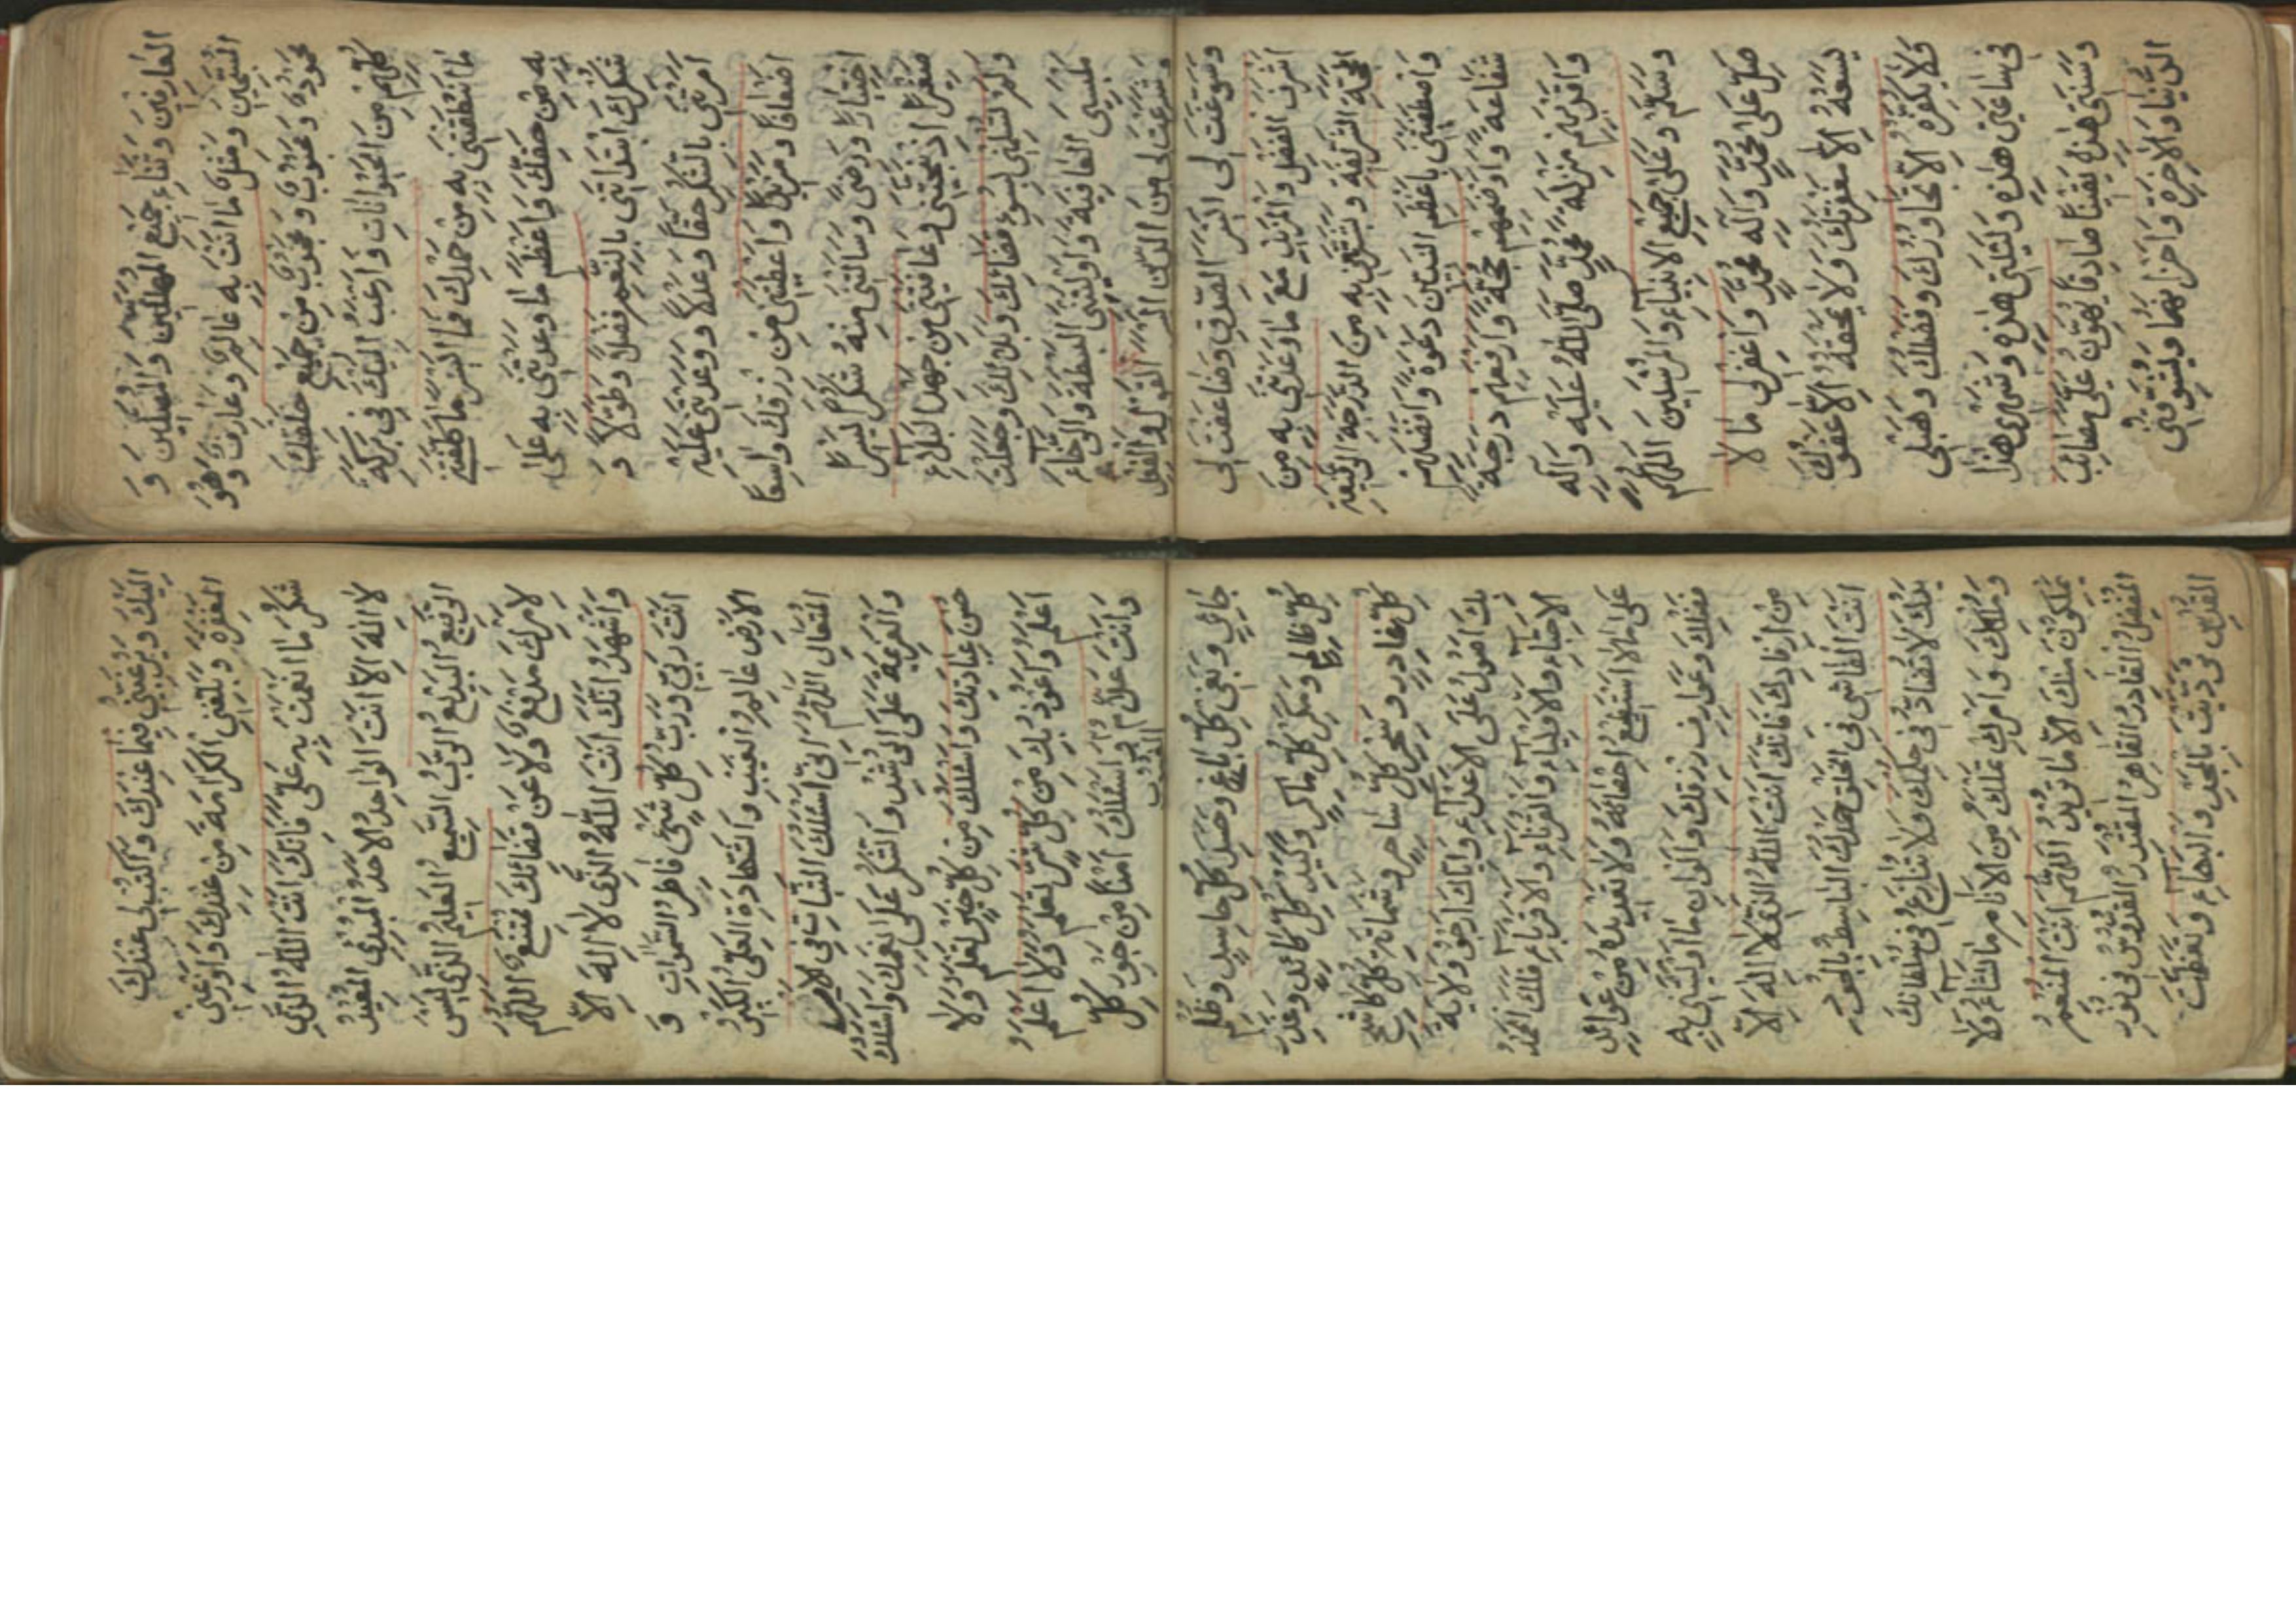 العارفين وثناء جميع المهللين والمصلين و
المسبحين ومثل ما انت به عالم وعارف وهو
محمود ومحبوب ومحجوب من جميع خلقك
كلهم من الحيوانات وارغب اليك في بركة
ما انطقتني به من حمدك فما ايسر ما كلفتني
به من حقك واعظم ما وعدتني به على
شكرك ابتدأتني بالنعم فضلا وطولا و
امرتني بالشكر حقا وعدلا ووعدتني عليه
اضعافا ومزيدا واعطيتني من رزقك واسعا
اختبارا ورضى وسالتني منه شكرا يسيرا
صغيرا اذ نجيتني وعافيتني من جهد البلاء
ولم تسلمني لسوء قضائك وبلائك وجعلت
ملبسي العافية واوليتني البسطة والرخاء
وشرعت لي من الدين ايسر القول والفعل
وسوغت لي ايسر الصدق وضاعفت لي
اشرف الفضل والمزيد مع ما وعدتني به من
المحجة الشريفة وبشرتني به من الدرجة الرفيعة
واصطفيتني باعظم النبيين دعوة وافضلهم
شفاعة واوضحهم حجة وارفعهم درجة
واقربهم منزلة محمد صلى الله عليه وآله
وسلم وعلى جميع الانبياء والمرسلين اللهم
صل على محمد وآله محمد واغفر لي ما لا
يسعه الا مغفرتك ولا يمحقه الا عفوك
ولا يكفره الا تجاوزك وفضلك وهب لي
في ساعتي هذه وليلتي هذه وشهري هذا
وسنتي هذه يقينا صادقا يهون علي مصائب
الدنيا والاخرة واحزانهما ويشوقني
اليك ويرغبني فيما عندك واكتب لي عندك
المغفرة وبلغني الكرامة من عندك واوزعني
شكر ما انعمت به علي فانك انت الله الذي
لا اله الا انت الواحد الاحد المبدئ المعيد
الرفيع البديع الرب السميع العليم الذي ليس
لامرك مدفع ولا عن قضائك ممتنع اللهم
واشهد انك انت الله الذي لا اله الا
انت ربي ورب كل شيء فاطر السموات و
الارض عالم الغيب والشهادة العلي الكبير
المتعال اللهم اني اسئلك الثبات في الامر
والعزيمة على الرشد والشكر على نعمك واسئلك
حسن عبادتك واسئلك من كل خير تعلم ولا
اعلم واعوذ بك من كل شر تعلم ولا اعلم
وانت علام الغيوب واسئلك امنا من جور كل
جائر وبغي كل باغ وحسد كل حاسد وظلم
كل ظالم ومكر كل ماكر وكيد كل كائد وغدر
كل غادر وسحر كل ساحر وشماتة كل كاشح
بك اصول على الاعداء واياك ارجو ولاية
الاحباء والاولياء والقرناء والاقرباء فلك الحمد
على ما لا استطيع احصائه ولا تعديده من عوائد
فضلك وعوارف رزقك والوان ما اوليتني به
من ارفادك فانك انت الله الذي لا اله الا
انت الفاشي في الخلق حمدك الباسط بالجود
يدك لا تضاد في حكمك ولا تنازع في سلطانك
وملكك وامرك تملك من الانام ما تشاء ولا
يملكون منك الا ما تريد اللهم انت المنعم
المفضل القادر القاهر المقتدر القدوس في نور
القدس ترديت بالمجد والبهاء وتعظمت